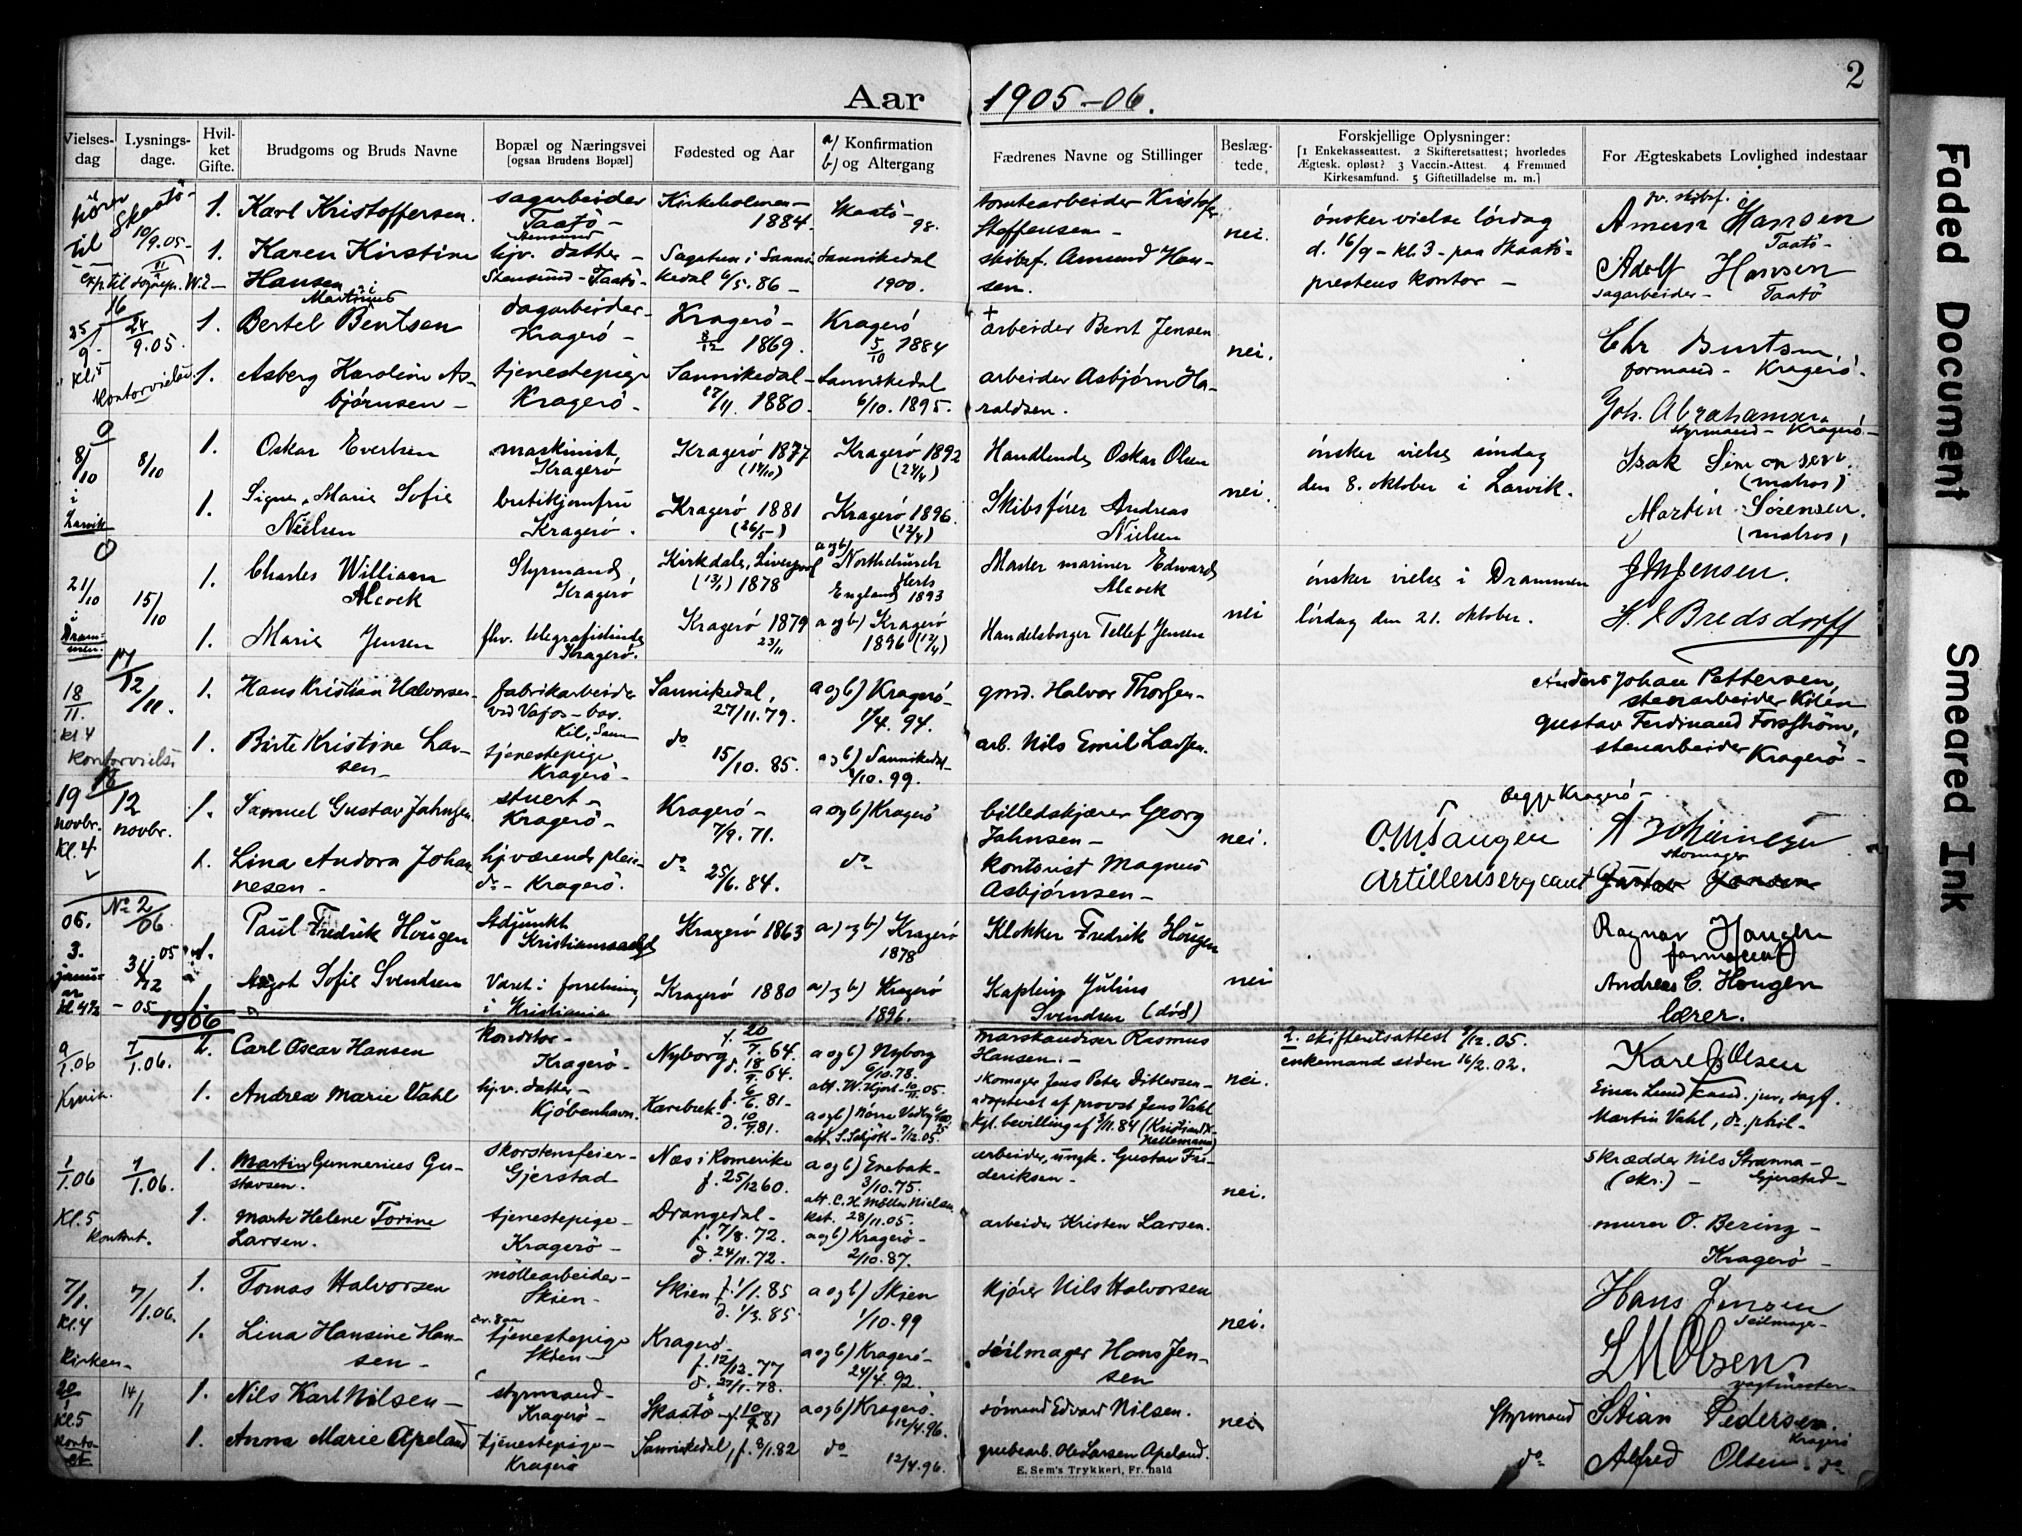 Aar 1905-06.
2
Faded Document
Smeared Ink
Vielsesdag
Lysningsdage.
Hvilket Gifte.
Brudgoms og Bruds Navne
Bopæl og Næringsvei [ogsaa Brudens Bopæl]
Fødested og Aar
a) Konfirmation b) og Altergang
Fædrenes Navne og Stillinger
Beslægtede.
Forskjellige Oplysninger:
[1 Enkekasseattest. 2 Skifteretsattest; hvorledes
Ægtesk. opløst? 3 Vaccin.-Attest. 4 Fremmed
Kirkesamfund. 5 Giftetilladelse m. m.]
For Ægteskabets Lovlighed indestaar
til Skaatö
10/9.05.
1. Karl Kristoffersen.
sagarbeider
Taatö
Kirkeholmen
1884.
Skaatö
98.
tomtearbeider Kristofer
Steffensen
nei.
ønsker vielse lördag
d. 16/9 - kl. 3 - paa Skaatö
prestens kontor
Amund Hansen
Taatö
1. Karen Kirstine
Hansen
hjv. datter
Stensund - Taatö
Sannikedal 6/5.86
Sannikedal
1900.
skibsf. Amund Hansen.
Adolf Hansen
sagarbeider - Taatö
16
25/9
24/9.05.
1. Bertel Martinus Bentsen
dagarbeider
Kragerö
Kragerö
8/12 1869.
Kragerö
5/10 1884
+ arbeider Bent Jensen
nei.
Chr Bentsen
formand - Kragerö.
Kl. 5
Kontorvielse.
1. Asberg Karoline Asbjørnsen
tjenestepige
Kragerö
Sannikedal
17/11 1880.
Sannikedal
6/10. 1895.
arbeider Asbjørn Haraldsen.
Joh. Abrahamsen
styrmand - Kragerö
0
8/10
8/10
1. Oskar Evertsen
maskinist,
Kragerö
Kragerö 1877
(14/10)
Kragerö 1892
(24/4)
Handlende Oskar Olsen
nei.
ønsker vielse söndag
den 8. oktober i Larvik.
Isak Simonsen
(matros)
i Larvik
1. Signe Marie Sofie
Nielsen
butikjomfru
Kragerö.
Kragerö 1881
(26/5)
Kragerö 1896.
(12/4)
Skibsfører Andreas
Nielsen
Martin Sørensen.
(matros)
0
21/10
15/10
1. Charles William
Alcock
Styrmand,
Kragerö
Kirkdale, Liverpool
(13/1) 1878
a og b) Northchurch
Herts
England 1893
Master mariner Edward
Alcock
nei
ønsker vielse i Drammen
lördag den 21. oktober.
J M Jensen.
i Drammen.
1. Marie Jensen
fhv. telegrafistinde
Kragerö.
Kragerö 1879
23/11
a og b) Kragerö
1896 (12/4)
Handelsborger Tellef Jensen
H. J. Bredsdorff
17
18/11.
12/11.
1. Hans Kristian Halvorsen
fabrikarbeider
ved Vafos - bor.
Kil, Sann
Sannikedal,
27/11.79.
a og b) Kragerö
1/4. 94.
gmd. Halvor Thorsen
Anders Johan Pettersen,
stenarbeider Kilen
kl. 4
Kontorvielse
1. Birte Kristine Larsen
tjenestepige
Kragerö
do
15/10. 85.
a og b) Sannikedal
1/10. 99.
arb. Nils Emil Larsen.
Gustav Ferdinand Forsström,
stenarbeider
Kragerö
18
19 novbr.
Kl. 4
12 novbr.
1. Samuel Gustav Jahnsen
stuert
Kragerö
Kragerö
7/9. 71.
a og b) Kragerö
billedskjærer Georg
Jahnsen
nei.
begge Kragerö
O. M. Tangen
Artillerisergeant
skomager
Gustav Jensen
1. Lina Andora Johannesen
Kragerö.
do
25/6. 84.
do
kontorist Magnus
Asbjørnsen
06.
No 2/06
3. januar
kl. 4 1/2
31/12 - 05
1. Paul Fredrik Hougen
Adjunkt
Kristianssand
Kragerö 1863
a) og b) Kragerö
1878
Klokker Fredrik Hougen
nei
Ragnar Hougen
formand
Aagot Sofie Svendsen
Været i forretning
i Kristiania
Kragerö 1880
a) og b) Kragerö
1896.
Kaptein Julius
Svendsen (død)
Andreas C. Hougen
lærer.
1906
9/1.06
7/1.06.
2. Carl Oscar Hansen
Konditor
Kragerö
Nyborg
f. 20/7.64.
d. 18/9.64.
a og b) Nyborg
6/10.78.
marskandiser Rasmus
Hansen.
nei.
2. skifteretsattest 9/12.05.
enkemand siden 16/2.02.
Karl Olsen
1. Andrea Marie Vahl
hjv. datter
Kjöbenhavn.
Karebæk
f. 6/6.81
d. 10/7.81.
a og b) Nørre Vedby
att. S. Schjött - 7/12.05.
skomager Jens Peter Ditlevsen
adopteret af provst Jens Vahl
kgl. bevilling af 7/11.84
Einar Lund cand. jur, sagf.
Martin Vahl, dr. phil
1/1.06
7/1.06.
1. Martin Gunnerius Gustavsen.
skorstensfeier
Gjerstad
Næs i Romerike
f. 25/12 60.
a og b) Enebak
3/10.75.
att. C. H. Möller Nielsen
Kst. 28/11.05.
arbeider, ungk. Gustav Frederiksen
nei.
skrædder Nils Stranna
Gjerstad
Kl. 5
kontor.
1. Marte Helene Torine
Larsen.
tjenestepige
Kragerö
Drangedal
f. 7/8.72.
d. 24/11.72.
a og b) Kragerö
2/10.87.
arbeider Kristen Larsen.
murer O. Bering
Kragerö
7/1.
Kl. 4
Kirken
7/1.06.
1. Tomas Halvorsen
møllearbeider
Skien
Skien f. 1/1.85
d. 1/3.85.
a og b) Skien
1/10.99
kjører Nils Halvorsen
nei.
Hans Jensen
Seilmager
1. Lina Hansine Hansen
tjenestepige
Skien
Kragerö
f. 12/12.77
d. 27/1.78.
a og b) Kragerö
24/4.92.
seilmager Hans Jensen
L M Olsen
vagtmester
20/1
Kl. 5
14/1
1. Nils Karl Nilsen
styrmand
Kragerö
Skaatö f. 10/9 81
a og b) Kragerö
12/4.96.
sømand Edvard Nilsen.
nei
Styrmand Stian Pedersen
Kragerö
1. Anna Marie Apeland
tjenestepige
Kragerö
Sannikedal, f. 8/1.82
do
12/4.96.
grubearb. Ole Larsen Apeland.
do Alfred Olsen do
E. Sem's Trykkeri, Fr.hald